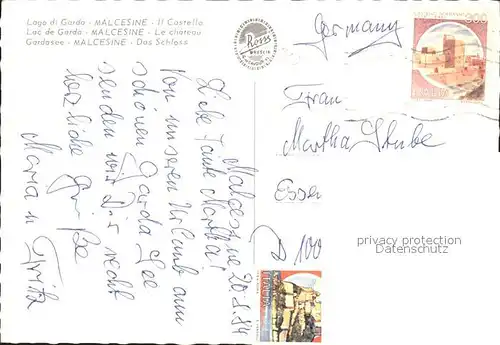 Lago di Garda - MALCESINE - Il Castello
Lac de Garda - MALCESINE - Le château
Gardasee - MALCESINE - Das Schloss
Malcesine 20.8.84
Liebe Tante Martha!
Von unseren Urlaub am
schönen Garda See
senden wir Dir recht
herzliche Grüße
Maria u
Fritz
Germany
Frau
Martha Stube
Essen
100
ITALIA
ITALIA
privacy protection